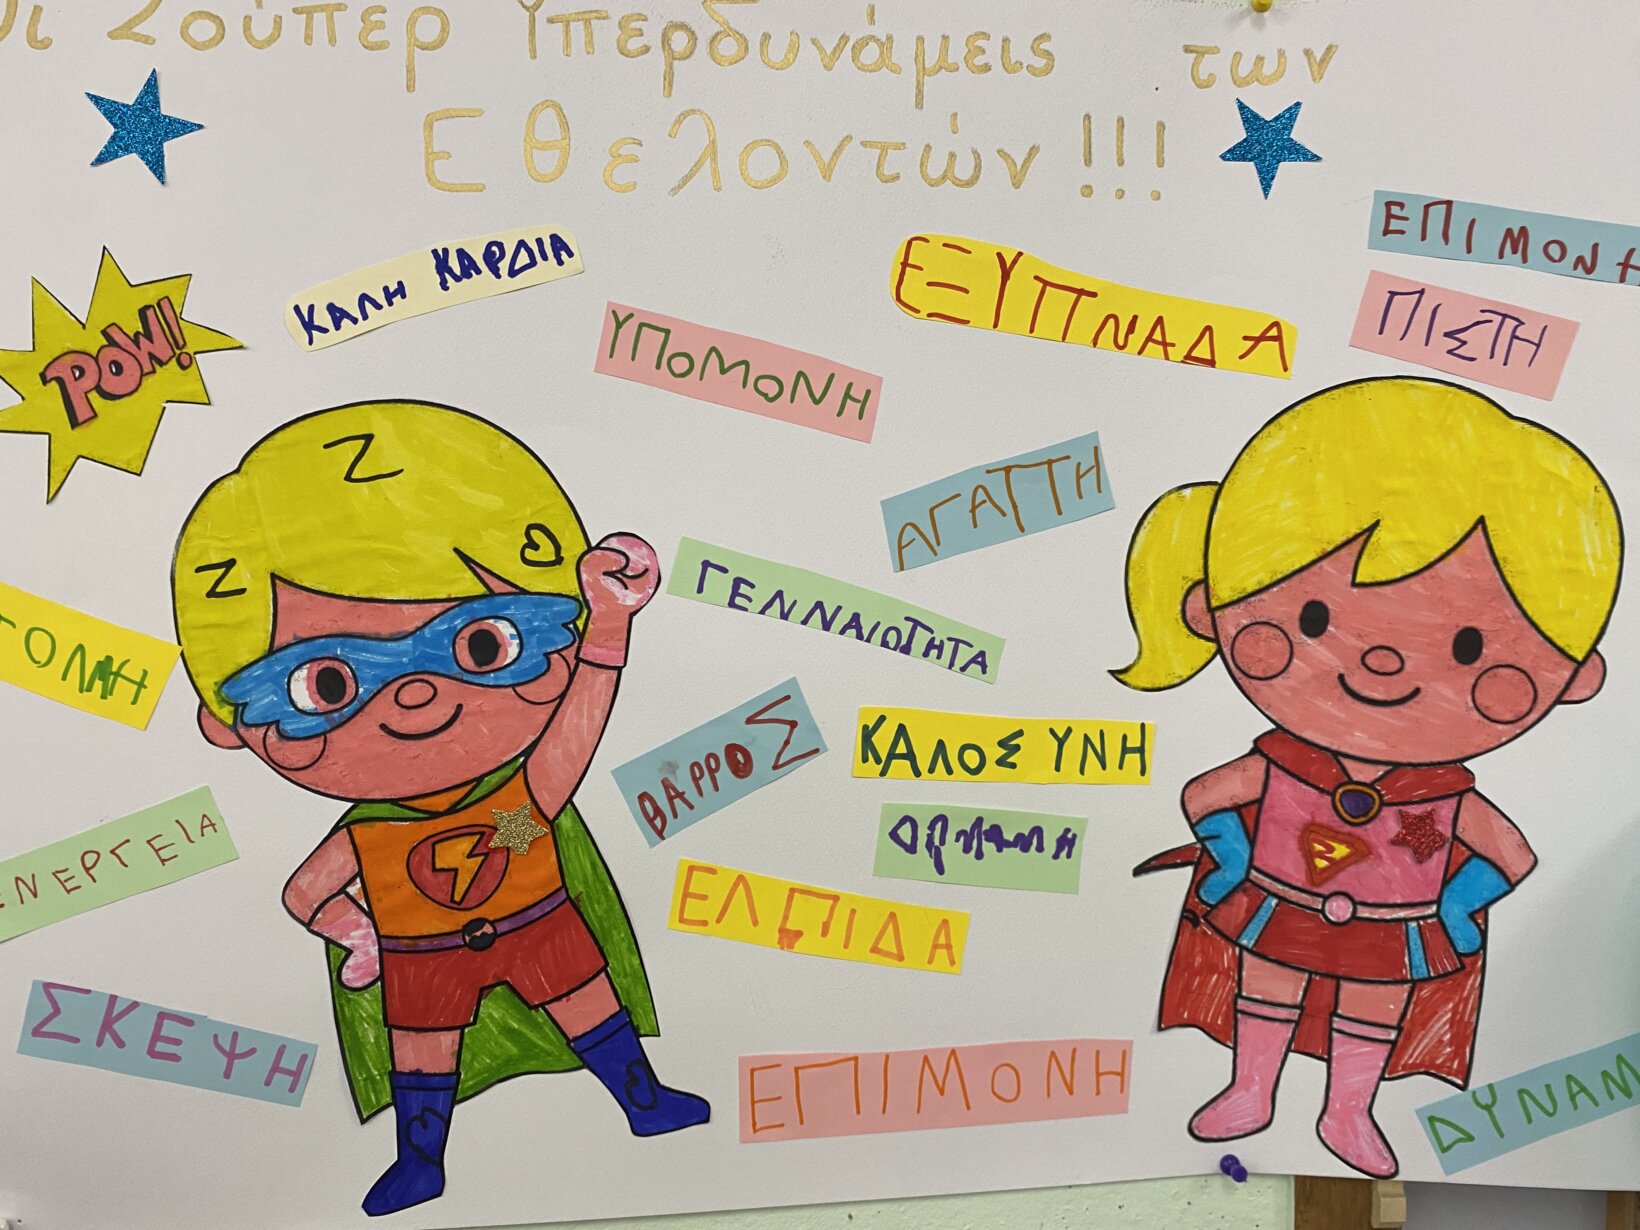 Οι Σούπερ Υπερδυνάμεις των
Εθελοντών!!!
ΕΠΙΜΟΝΗ
ΚΑΛΗ ΚΑΡΔΙΑ
ΕΞΥΠΝΑΔΑ
ΠΙΣΤΗ
POW!
ΥΠΟΜΟΝΗ
ΑΓΑΠΗ
ΓΕΝΝΑΙΟΤΗΤΑ
ΤΟΛΜΗ
ΘΑΡΡΟΣ
ΚΑΛΟΣΥΝΗ
ΕΝΕΡΓΕΙΑ
ΕΛΠΙΔΑ
ΣΚΕΨΗ
ΕΠΙΜΟΝΗ
ΔΥΝΑΜ